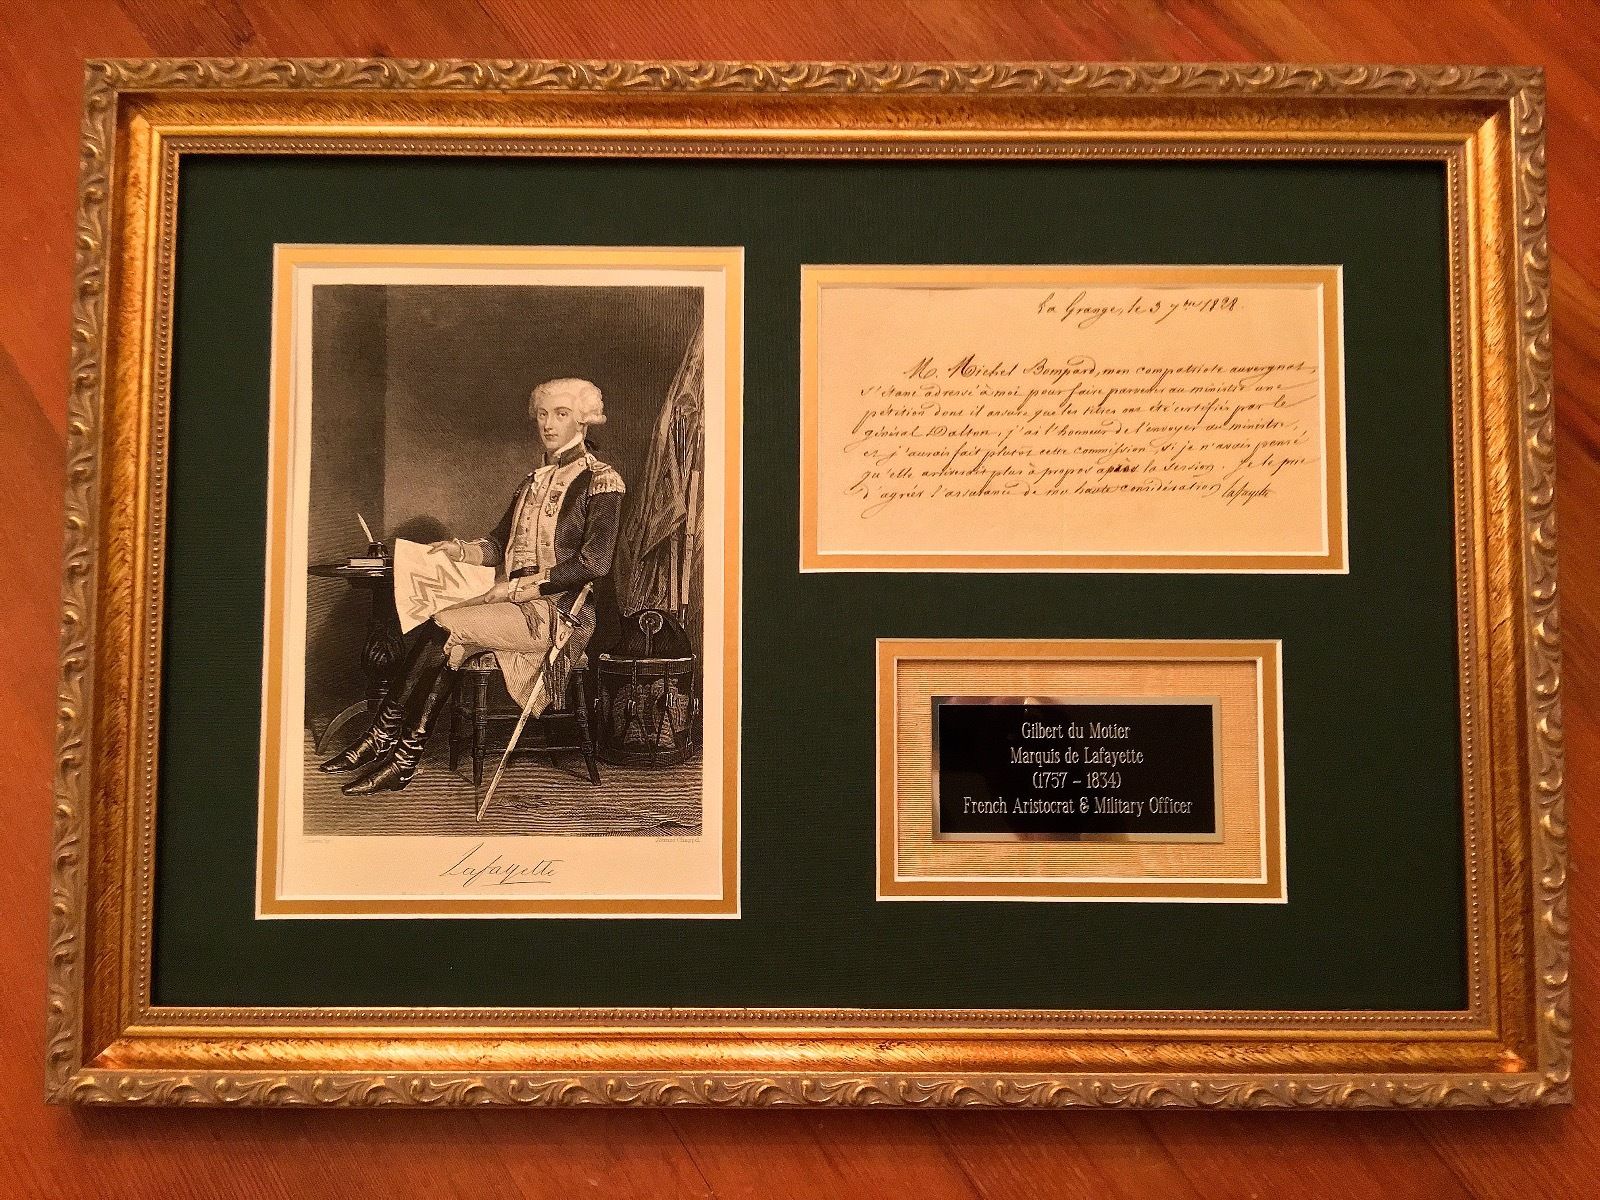 Lafayette
La Grange, le 3 7bre 1828.
M. Michel Bompard, mon compatriote auvergnat
s'étant adressé à moi pour faire parvenir au ministre une
pétition dont il assure que les titres ont été certifiés par le
général Dalton, j'ai l'honneur de l'envoyer au ministre,
et j'aurais fait plutôt cette commission, si je n'avais pensé
qu'elle arriverait plus à propos après la session. Je le prie
d'agréer l'assurance de ma haute considération Lafayette
Gilbert du Motier
Marquis de Lafayette
(1757 – 1834)
French Aristocrat & Military Officer